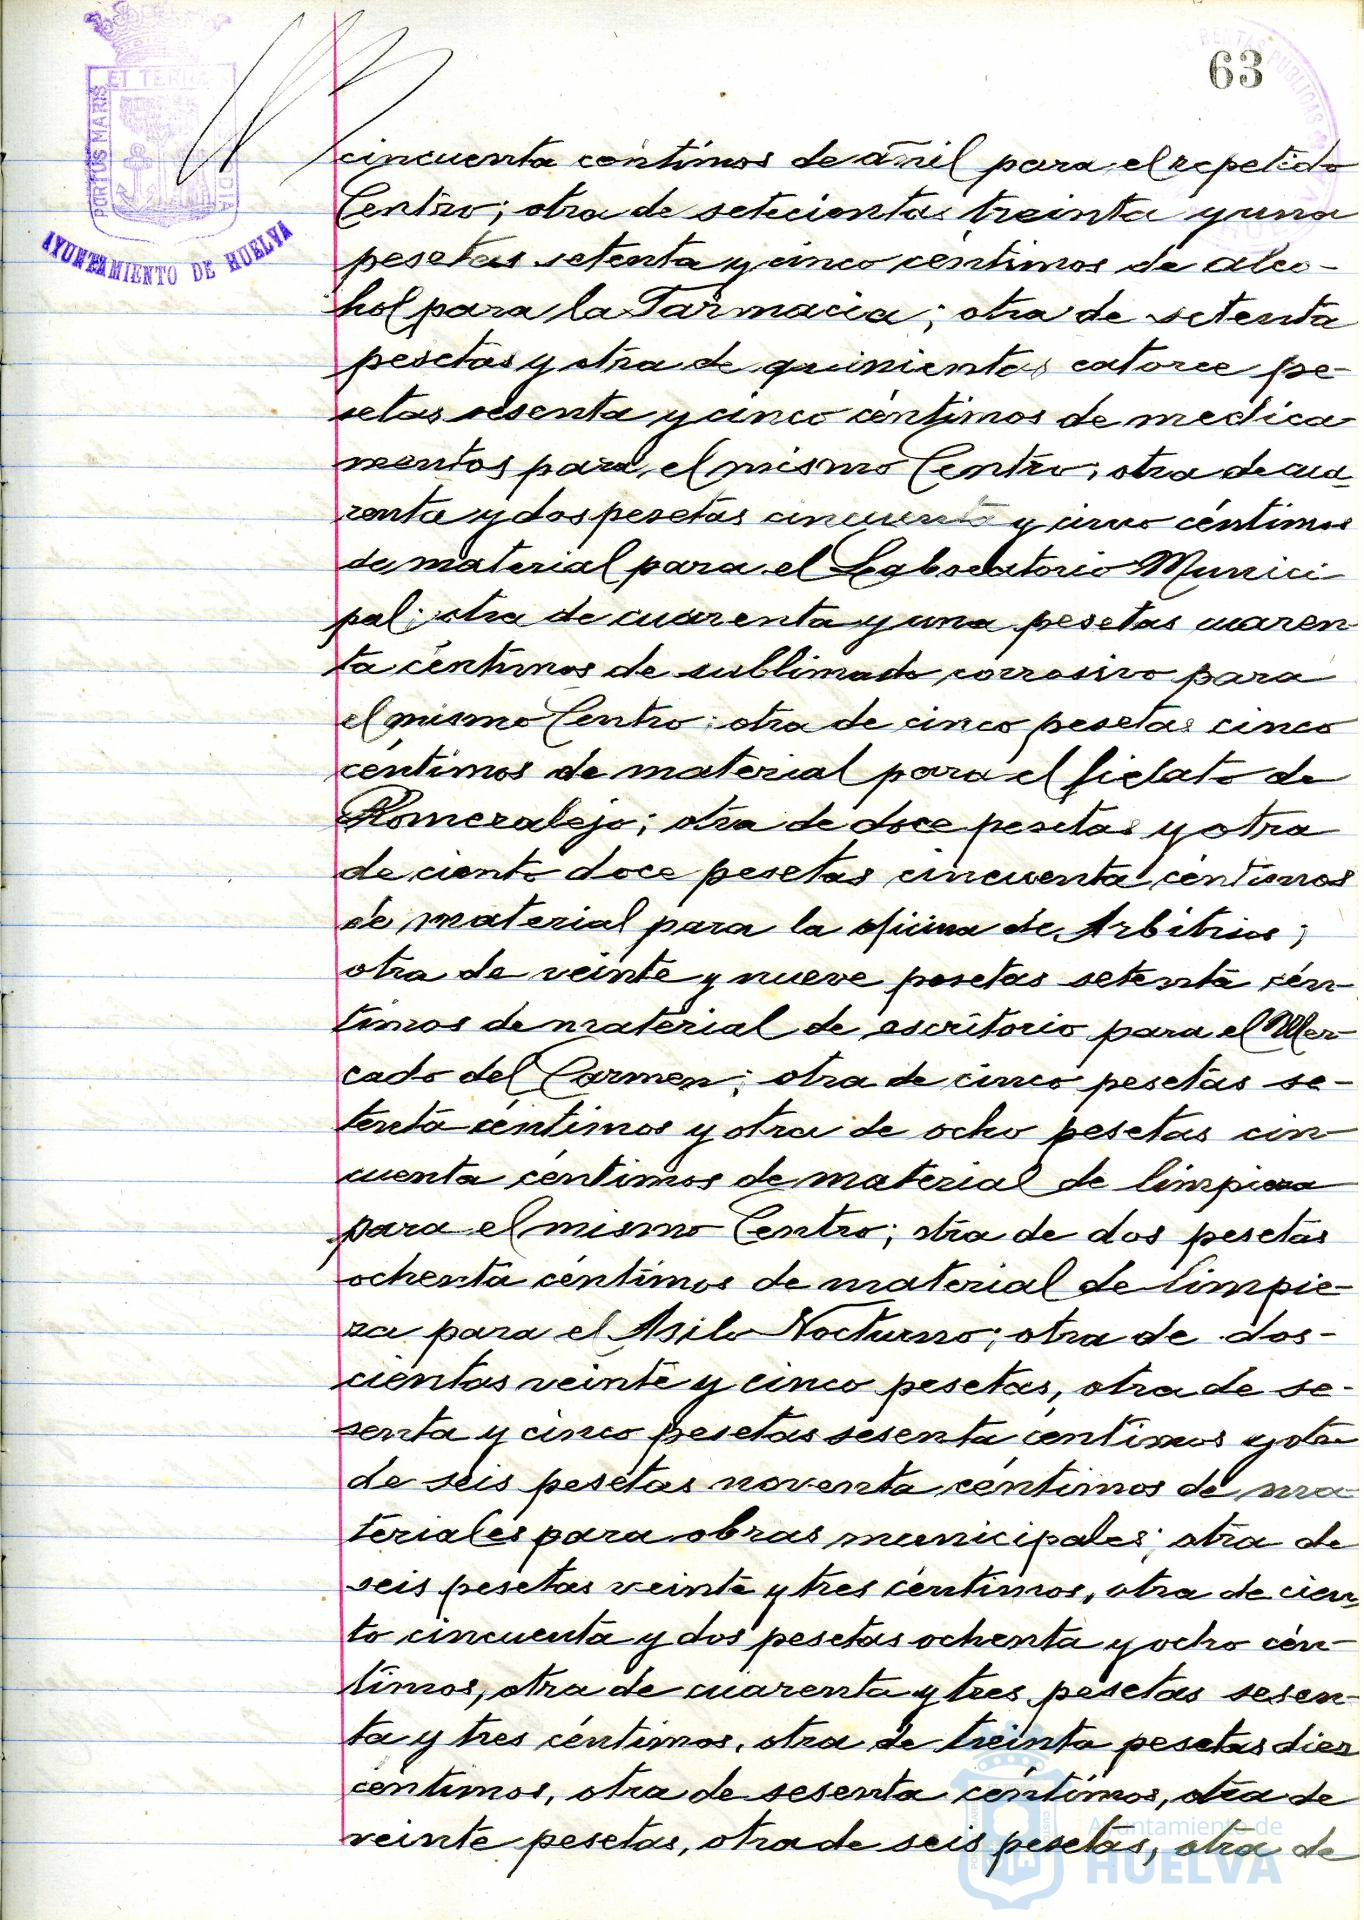 63
ET TERRAE
PORTUS MARIS
AYUNTAMIENTO DE HUELVA
RENTAS PUBLICAS
cincuenta céntimos de añil para el repetido
Centro; otra de setecientas treinta y una
pesetas setenta y cinco céntimos de alco-
hol para la Farmacia; otra de setenta
pesetas y otra de quinientas catorce pe-
setas sesenta y cinco céntimos de medica-
mentos para el mismo Centro; otra de cua-
renta y dos pesetas cincuenta y cinco céntimos
de material para el Laboratorio Munici
pal; otra de cuarenta y una pesetas cuaren
ta céntimos de sublimado corrosivo para
el mismo Centro; otra de cinco pesetas cinco
céntimos de material para el fielato de
Romeralejo; otra de doce pesetas y otra
de ciento doce pesetas cincuenta céntimos
de material para la oficina de Arbitrios;
otra de veinte y nueve pesetas setenta cén-
timos de material de escritorio para el Mer-
cado del Carmen; otra de cinco pesetas se-
tenta céntimos y otra de ocho pesetas cin-
cuenta céntimos de material de limpieza
para el mismo Centro; otra de dos pesetas
ochenta céntimos de material de limpie-
za para el Asilo Nocturno; otra de dos-
cientas veinte y cinco pesetas, otra de se-
senta y cinco pesetas sesenta céntimos y otra
de seis pesetas noventa céntimos de ma-
teriales para obras municipales; otra de
seis pesetas veinte y tres céntimos, otra de cien-
to cincuenta y dos pesetas ochenta y ocho cén-
timos, otra de cuarenta y tres pesetas sesen-
ta y tres céntimos, otra de treinta pesetas diez
céntimos, otra de sesenta céntimos, otra de
veinte pesetas, otra de seis pesetas, otra de
Ayuntamiento de
HUELVA